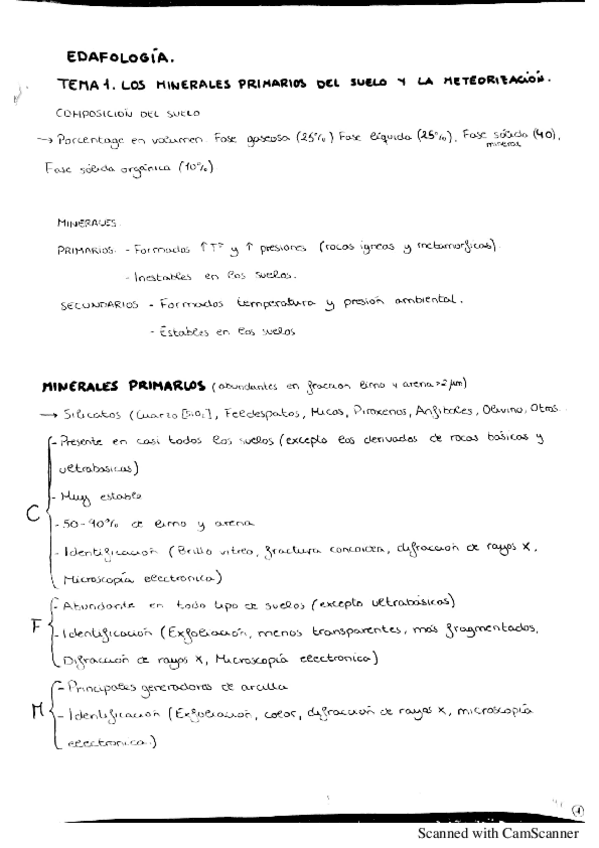 EDAFOLOGÍA.
TEMA 1. LOS MINERALES PRIMARIOS DEL SUELO Y LA METEORIZACIÓN.
COMPOSICION DEL SUELO
→ Porcentage en volumen. Fase gaseosa (25%) Fase líquida (25%), Fase sólida (40),
mineral
Fase sólida orgánica (10%)
MINERALES.
PRIMARIOS. - Formados ↑Tª y ↑ presiones (rocas igneas y metamorficas).
- Inestables en los suelos.
SECUNDARIOS - Formados temperatura y presión ambiental.
- Estables en los suelos
MINERALES PRIMARIOS (abundantes en fraccion limo y arena >2 µm)
→ Silicatos (Cuarzo [SiO2], Feldespatos, Micas, Piroxenos, Anfiboles, Olivino, Otros.
C
- Presente en casi todos los suelos (excepto los derivados de rocas básicas y
ultrabasicas)
- Muy estable
- 50-90% de limo y arena
- Identificación (Brillo vitreo, fractura concoidea, difracción de rayos X,
Microscopía electronica)
F
- Abundante en todo tipo de suelos (excepto ultrabásicas)
- Identificación (Exfoliación, menos transparentes, más fragmentados,
Difracción de rayos X, Microscopía electronica)
M
- Principales generadores de arcilla
- Identificación (Exfoliación, color, difracción de rayos X, microscopía
electronica.)
1
Scanned with CamScanner